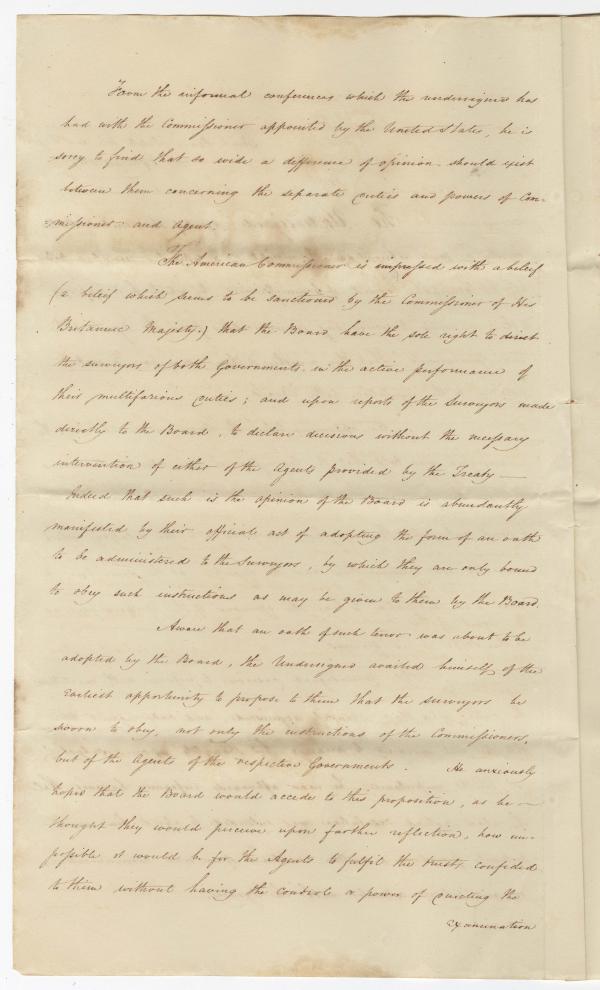 From the informal conferences which the undersigned has
had with the Commissioner appointed by the United States, he is
sorry to find that so wide a difference of opinion should exist
between them concerning the separate duties and powers of Com-
=missioner and Agent.
The American Commissioner is impressed with a beleif
(a beleif which seems to be sanctioned by the Commissioner of His
Britannic Majesty.) that the Board have the sole right to direct
the surveyors of both Governments in the active performance of
their multifarious duties; and upon reports of the Surveyors made
directly to the Board, to declare decisions without the necessary
intervention of either of the Agents provided by the Treaty —
Indeed that such is the opinion of the Board is abundantly
manifested by their official act of adopting the form of an oath
to be administered to the Surveyors, by which they are only bound
to obey such instructions as may be given to them by the Board.
Aware that an oath of such tenor was about to be
adopted by the Board, the Undersigned availed himself of the
earliest opportunity to propose to them that the surveyors be
sworn to obey, not only the instructions of the Commissioners,
but of the Agents of the respective Governments. He anxiously
hoped that the Board would accede to this proposition, as he —
thought they would perceive upon further reflection, how im-
possible it would be for the Agents to fulfil the trusts confided
to them without having the controle or power of directing the
examination